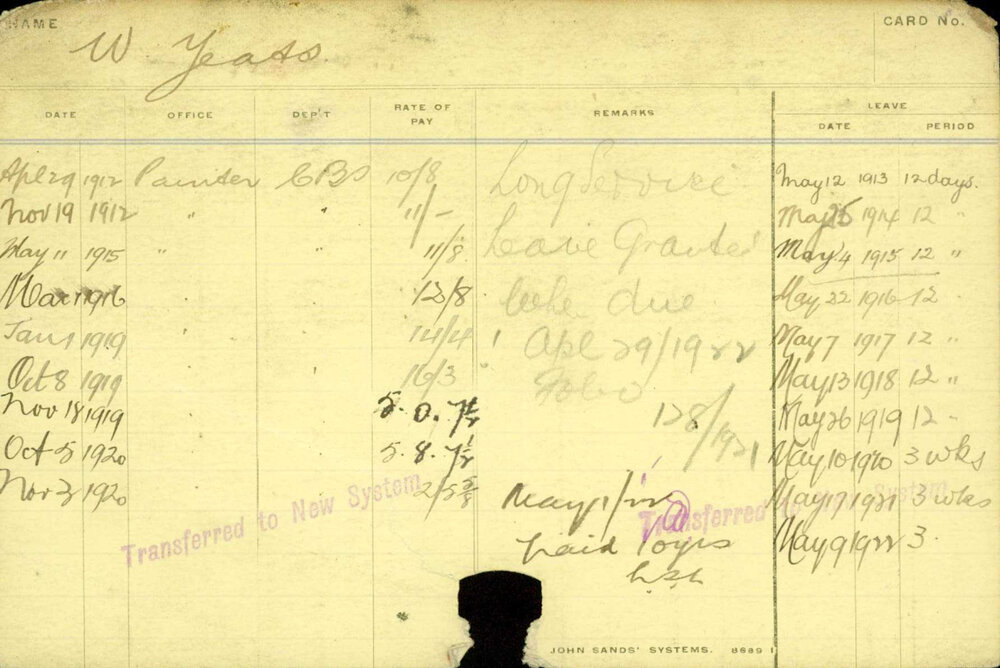 NAME
W Yeats.
CARD No.
DATE OFFICE DEP'T RATE OF PAY REMARKS LEAVE
DATE PERIOD
Apl 29 1912 Painter CBS 10/8 Long Service May 12 1913 12 days.
Nov 19 1912 " " 11/- May 25 1914 12 "
May 11 1915 " " 11/8 Leave Granted May 4 1915 12 "
Mar 1 1916 12/8 When due May 22 1916 12
Jan 1 1919 14/4 Apl 29/1922 May 7 1917 12 "
Oct 8 1919 16/3 May 13 1918 12 "
Nov 18 1919 5.0.7½ 128/1921 May 26 1919 12 "
Oct 5 1920 5.8.7½ May 10 1920 3 wks
Nov 3 1920 2/5⅝ May 1/22 May 17 1921 3 wks
Transferred to New System
Transferred to New System
Paid May 9 1922 3.
JOHN SANDS' SYSTEMS. 8689